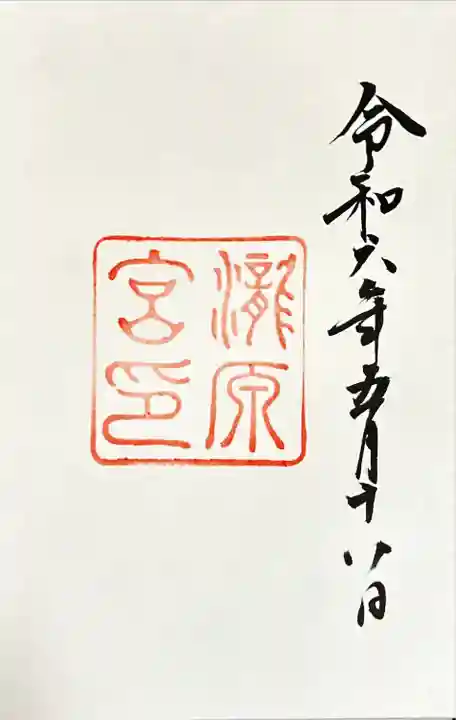 令和六年五月十八日
瀧原
宮印